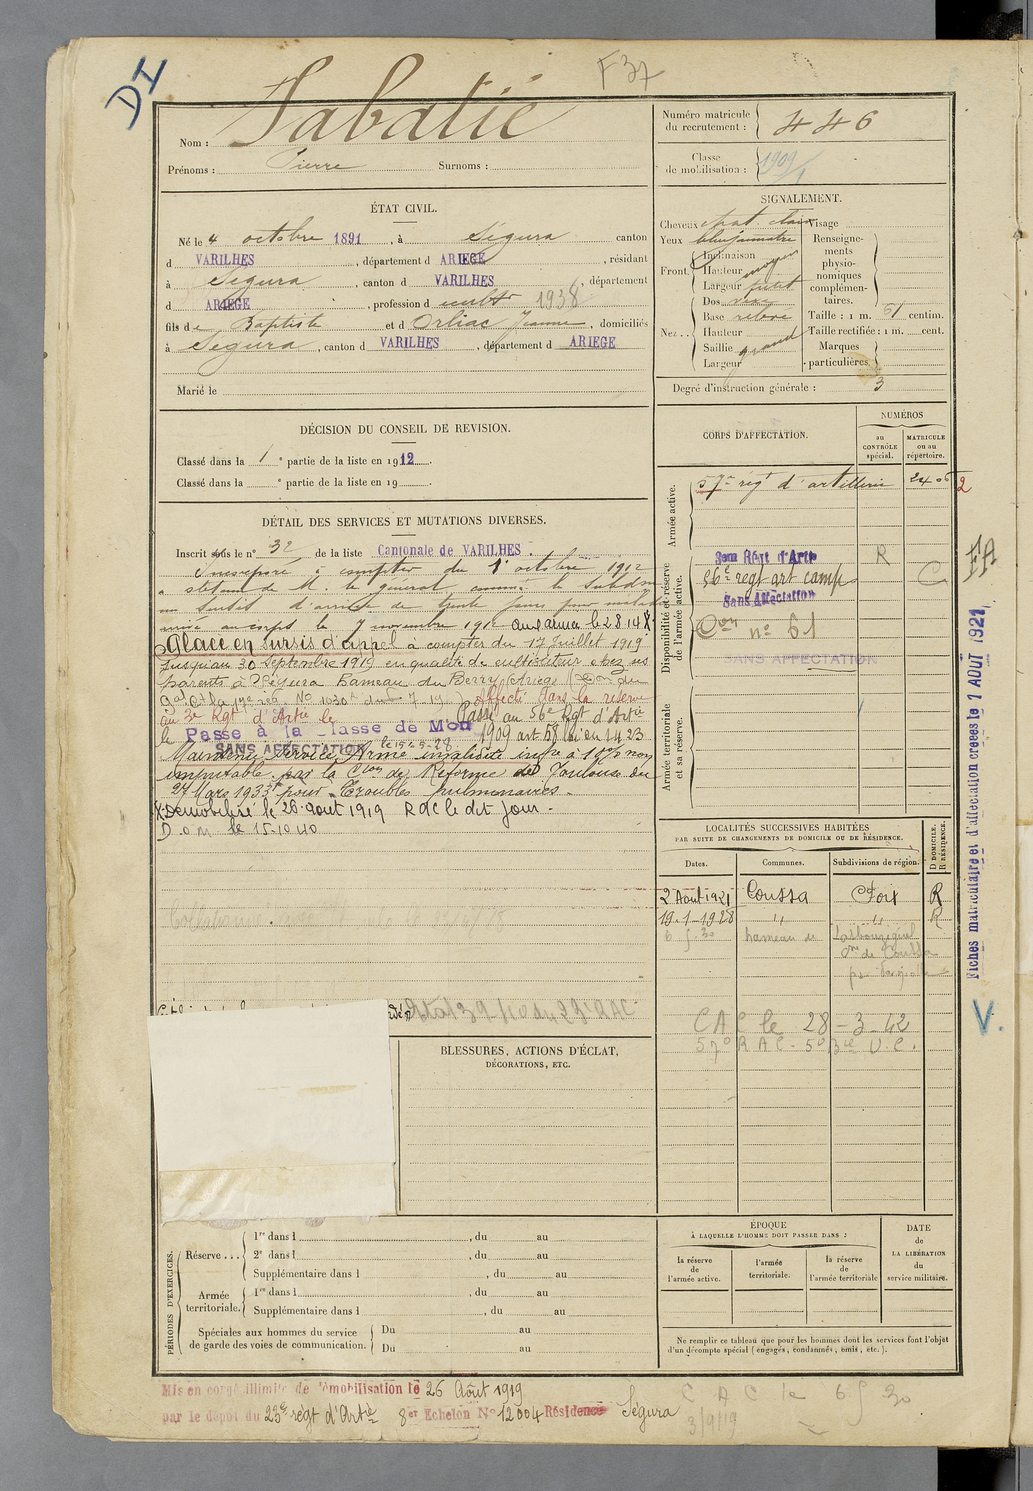 DI
F 37
Nom : Sabatié
Prénoms : Pierre Surnoms :
Numéro matricule du recrutement : 446
Classe de mobilisation : 1909/1
ÉTAT CIVIL.
Né le 4 octobre 1891, à Ségura canton
d VARILHES, département d ARIEGE, résidant
à Segura, canton d VARILHES, département
d ARIEGE, profession d cultr 1938
fils de Baptiste et d Orliac Jeanne, domiciliés
à Segura, canton d VARILHES, département d ARIEGE
Marié le
SIGNALEMENT.
Cheveux chat. clair
Yeux
Front.
Inclinaison
Hauteur moyen
Largeur
Nez . .
Dos
Base relevé
Hauteur
Saillie grand
Largeur
Visage
Renseigne-
ments
physio-
nomiques
complémen-
taires.
Taille : 1 m. 61 centim.
Taille rectifiée : 1 m. cent.
Marques
particulières.
Degré d'instruction générale : 3
DÉCISION DU CONSEIL DE REVISION.
Classé dans la 1e partie de la liste en 1912.
Classé dans la e partie de la liste en 19
CORPS D'AFFECTATION.
NUMÉROS
au CONTRÔLE spécial.
MATRICULE ou au répertoire.
Armée active.
57e régt d'artillerie 2406
2
Disponibilité et réserve de l'armée active.
3em Régt d'Artie R
56e regt art camp C
Sans Affectation
Con no 61
SANS AFFECTATION
Armée territoriale et sa réserve.
FA
Fiches matriculaire et d'affectation créées le 1 AOUT 1921
V.
DÉTAIL DES SERVICES ET MUTATIONS DIVERSES.
Inscrit sous le no 32 de la liste Cantonale de VARILHES.
Incorporé à compter du 1er octobre 1912
a obtenu de M. le général comm. la Subdon
un sursis d'arrivée de trente jours pour maladie
arrivé au corps le 7 novembre 1912 aux armées le 2 8 14 X
Placé en sursis d'appel à compter du 17 Juillet 1919
jusqu'au 30 Septembre 1919 en qualité de cultivateur chez ses
parents à Ségura hameau du Berry (Ariège)
Affecté dans la réserve
au 3e Rgt d'Artie le Passé au 56e Rgt d'Artie
le Passé à la Classe de Mon 1909 art 58 loi en 1 4 23
SANS AFFECTATION le 15-5-28
Maintenu Service Armé invalidité infre à 10% non
imputable par la Con de Réforme de Toulouse du
27 Mars 1933 pour "Troubles pulmonaires"
X Démobilisé le 26 août 1919 RDC le dit jour.
D.O.M le 15-10-40
LOCALITÉS SUCCESSIVES HABITÉES
PAR SUITE DE CHANGEMENTS DE DOMICILE OU DE RÉSIDENCE.
Dates. Communes. Subdivisions de région. D DOMICILE. R RÉSIDENCE.
2 Août 1921 Coussa Foix R
19-1-1928 " " R
6 5 30 hameau de
de Coussa
CAC le 28-3-42
57e RAC - 5e Bie U.C.
BLESSURES, ACTIONS D'ÉCLAT,
DÉCORATIONS, ETC.
PÉRIODES D'EXERCICES.
Réserve . . .
1re dans l , du au
2e dans l , du au
Supplémentaire dans l , du au
Armée territoriale.
1re dans l , du au
Supplémentaire dans l , du au
Spéciales aux hommes du service de garde des voies de communication.
Du au
Du au
ÉPOQUE
À LAQUELLE L'HOMME DOIT PASSER DANS :
la réserve de l'armée active.
l'armée territoriale.
la réserve de l'armée territoriale
DATE de LA LIBÉRATION du service militaire.
Ne remplir ce tableau que pour les hommes dont les services font l'objet
d'un décompte spécial (engagés, condamnés, omis, etc.).
Mis en congé illimité de démobilisation le 26 Août 1919
par le dépôt du 23e régt d'Artie 8er Echelon No 12004 Résidence Ségura
CAC le 6 5 30
3/9/19